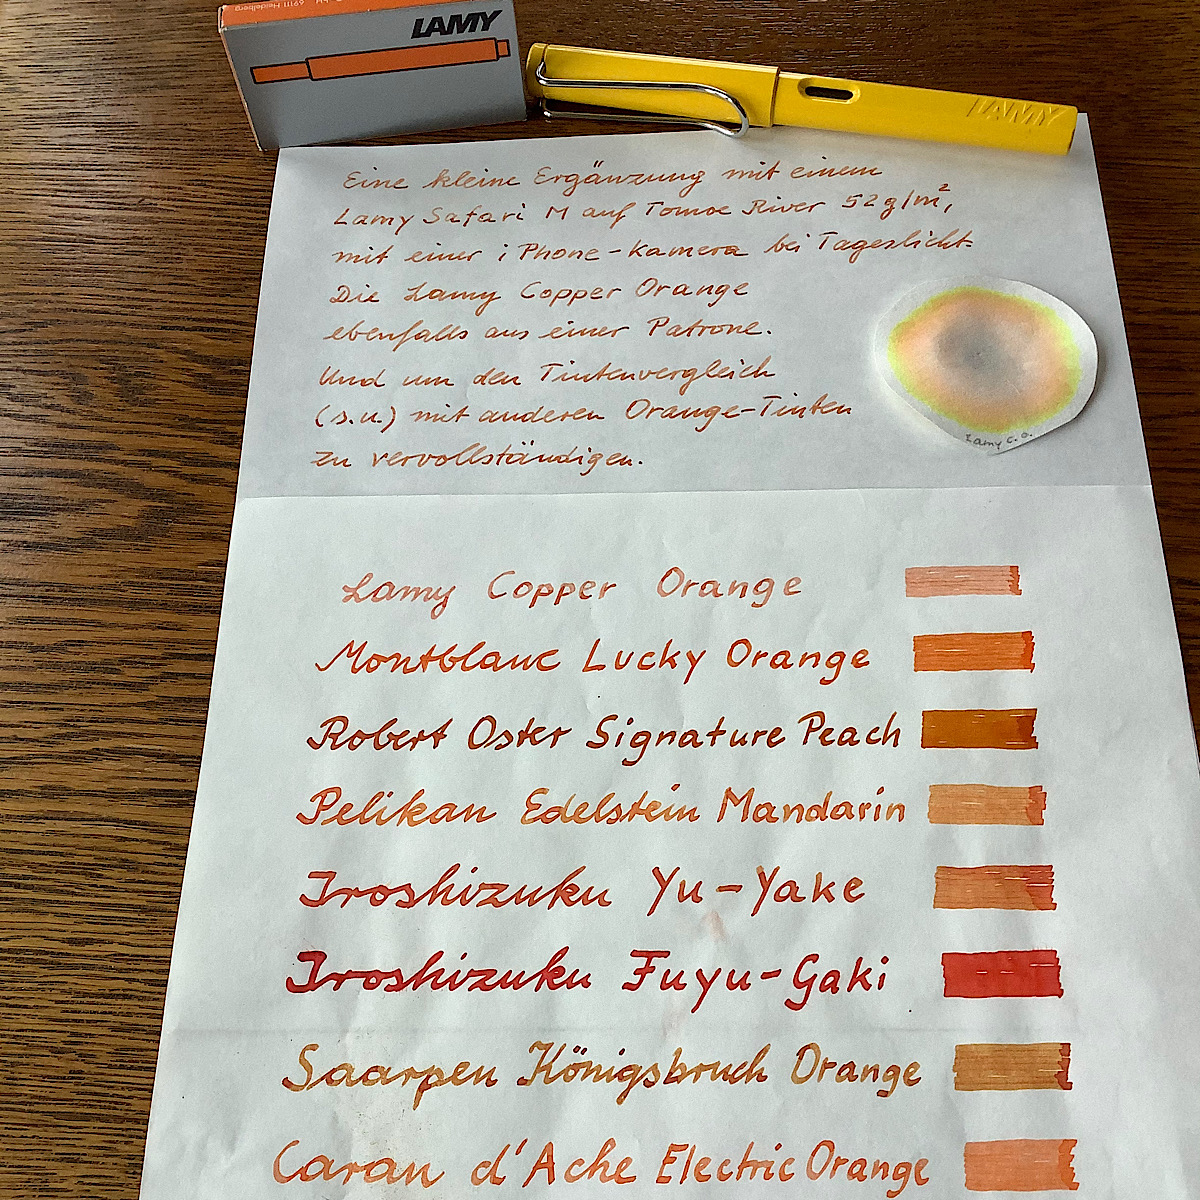 69111 Heidelberg
LAMY
LAMY
Eine kleine Ergänzung mit einem
Lamy Safari M auf Tomoe River 52g/m²,
mit einer iPhone-Kamera bei Tageslicht.
Die Lamy Copper Orange
ebenfalls aus einer Patrone.
Und um den Tintenvergleich
(s.u.) mit anderen Orange-Tinten
zu vervollständigen.
Lamy C.O.
Lamy Copper Orange
Montblanc Lucky Orange
Robert Oster Signature Peach
Pelikan Edelstein Mandarin
Iroshizuku Yu-Yake
Iroshizuku Fuyu-Gaki
Saarpen Königsbruch Orange
Caran d'Ache Electric Orange